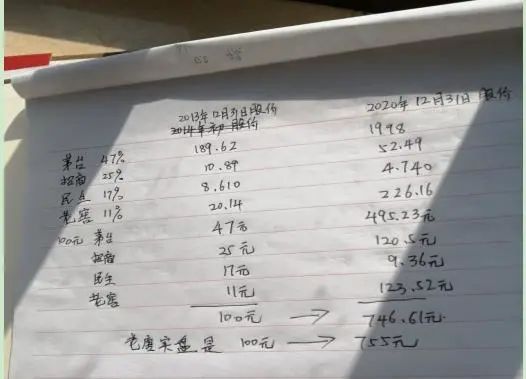 2013年12月31日股价 2020年12月31日股价
2014年初 股价
茅台 47% 189.62 1998
招商 25% 10.89 52.49
民生 17% 8.610 4.740
老窖 11% 20.14 226.16
100元 茅台 47元 495.23元
招商 25元 120.5元
民生 17元 9.36元
老窖 11元 123.52元
100元 → 746.61元
老唐实盘是 100元 → 755元